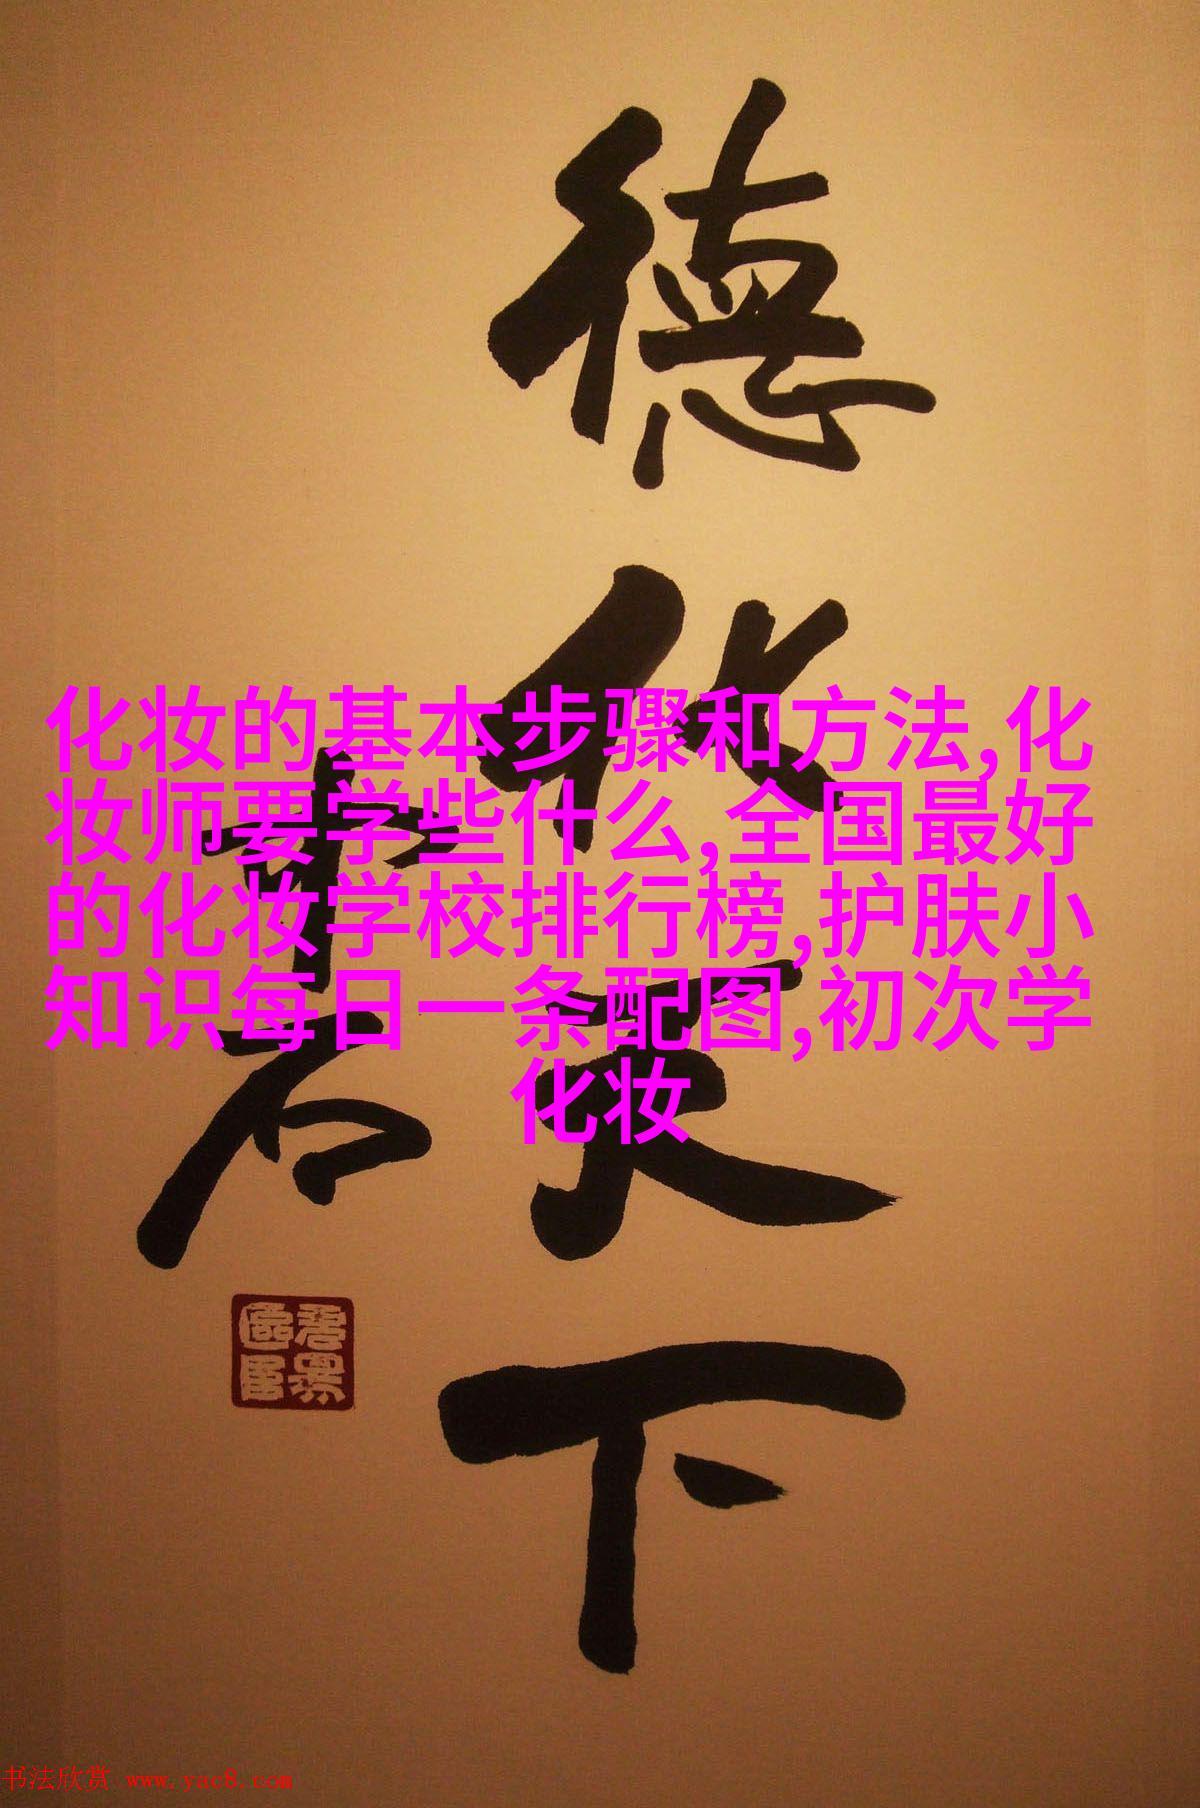 德化天下
化妆的基本步骤和方法,化
妆师要学些什么,全国最好
的化妆学校排行榜,护肤小
知识每日一条配图,初次学
化妆
书法欣赏 www.yac8.com